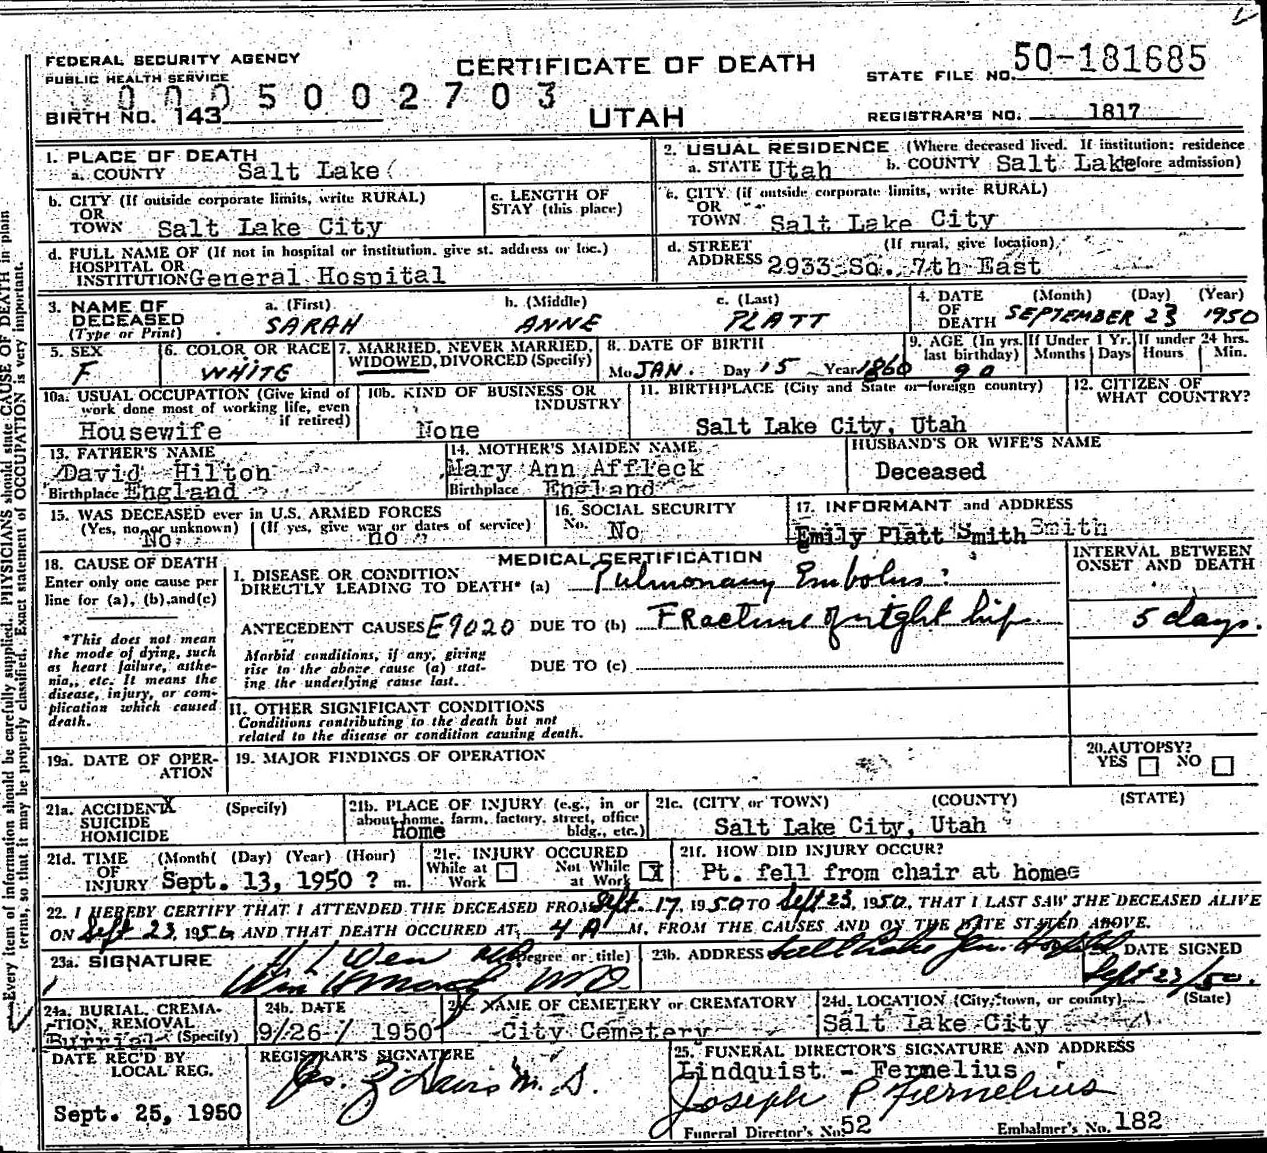 FEDERAL SECURITY AGENCY
PUBLIC HEALTH SERVICE
CERTIFICATE OF DEATH
STATE FILE NO. 50-181685
0005002703
BIRTH NO. 143
UTAH
REGISTRAR'S NO. 1817
Every item of information should be carefully supplied. PHYSICIANS should state CAUSE OF DEATH in plain
terms, so that it may be properly classified. Exact statement of OCCUPATION is very important.
1. PLACE OF DEATH
a. COUNTY Salt Lake
2. USUAL RESIDENCE (Where deceased lived. If institution: residence
a. STATE Utah b. COUNTY Salt Lake before admission)
b. CITY (If outside corporate limits, write RURAL)
OR
TOWN Salt Lake City
c. LENGTH OF
STAY (this place)
c. CITY (if outside corporate limits, write RURAL)
OR
TOWN Salt Lake City
d. FULL NAME OF (If not in hospital or institution, give st. address or loc.)
HOSPITAL OR
INSTITUTION General Hospital
d. STREET (If rural, give location)
ADDRESS 2933 So. 7th East
3. NAME OF
DECEASED
(Type or Print)
a. (First) SARAH
b. (Middle) ANNE
c. (Last) PLATT
4. DATE (Month) (Day) (Year)
OF
DEATH SEPTEMBER 23 1950
5. SEX
F
6. COLOR OR RACE
WHITE
7. MARRIED, NEVER MARRIED,
WIDOWED, DIVORCED (Specify)
8. DATE OF BIRTH
Mo JAN. Day 15 Year 1860
9. AGE (In yrs. last birthday)
90
If Under 1 Yr.
Months Days
If under 24 hrs.
Hours Min.
10a. USUAL OCCUPATION (Give kind of
work done most of working life, even
if retired)
Housewife
10b. KIND OF BUSINESS OR
INDUSTRY
None
11. BIRTHPLACE (City and State or foreign country)
Salt Lake City, Utah
12. CITIZEN OF
WHAT COUNTRY?
13. FATHER'S NAME
David Hilton
Birthplace England
14. MOTHER'S MAIDEN NAME
Mary Ann Affleck
Birthplace England
HUSBAND'S OR WIFE'S NAME
Deceased
15. WAS DECEASED ever in U.S. ARMED FORCES
(Yes, no or unknown) (If yes, give war or dates of service)
No. no
16. SOCIAL SECURITY
No. No
17. INFORMANT and ADDRESS
Emily Platt Smith Smith
18. CAUSE OF DEATH
Enter only one cause per
line for (a), (b), and (c)
*This does not mean
the mode of dying, such
as heart failure, asthe-
nia, etc. It means the
disease, injury, or com-
plication which caused
death.
MEDICAL CERTIFICATION
INTERVAL BETWEEN
ONSET AND DEATH
I. DISEASE OR CONDITION
DIRECTLY LEADING TO DEATH* (a) Pulmonary Embolus?
ANTECEDENT CAUSES E9020 DUE TO (b) Fracture of right hip 5 days.
Morbid conditions, if any, giving
rise to the above cause (a) stat-
ing the underlying cause last.
DUE TO (c)
II. OTHER SIGNIFICANT CONDITIONS
Conditions contributing to the death but not
related to the disease or condition causing death.
19a. DATE OF OPER-
ATION
19. MAJOR FINDINGS OF OPERATION
20. AUTOPSY?
YES NO
21a. ACCIDENT X (Specify)
SUICIDE
HOMICIDE
21b. PLACE OF INJURY (e.g., in or
about home, farm, factory, street, office
bldg., etc.)
Home
21c. (CITY or TOWN) (COUNTY) (STATE)
Salt Lake City, Utah
21d. TIME (Month) (Day) (Year) (Hour)
OF
INJURY Sept. 13, 1950 ? m.
21e. INJURY OCCURED
While at Work Not While at Work X
21f. HOW DID INJURY OCCUR?
Pt. fell from chair at home
22. I HEREBY CERTIFY THAT I ATTENDED THE DECEASED FROM Sept. 17, 1950 TO Sept 23, 1950, THAT I LAST SAW THE DECEASED ALIVE
ON Sept 23, 1950 AND THAT DEATH OCCURED AT 4 A M. FROM THE CAUSES AND ON THE DATE STATED ABOVE.
23a. SIGNATURE (Degree or title)
M.D.
23b. ADDRESS Salt Lake Gen. Hospital
23c. DATE SIGNED
Sept 23/50.
24a. BURIAL, CREMA-
TION, REMOVAL
(Specify)
Burrial
24b. DATE
9/26/1950
24c. NAME OF CEMETERY or CREMATORY
City Cemetery
24d. LOCATION (City, town, or county) (State)
Salt Lake City
DATE REC'D BY
LOCAL REG.
Sept. 25, 1950
REGISTRAR'S SIGNATURE
25. FUNERAL DIRECTOR'S SIGNATURE AND ADDRESS
Lindquist - Fernelius
Joseph P Fernelius
Funeral Director's No. 52 Embalmer's No. 182